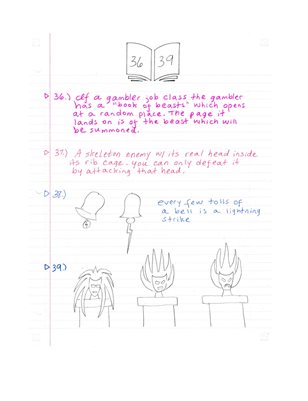 36 39
▷ 36.) Of a gambler job class the gambler
has a "book of beasts" which opens
at a random place. The page it
lands on is of the beast which will
be summoned.
▷ 37.) A skeleton enemy w/its real head inside
its rib cage. you can only defeat it
by attacking that head.
▷ 38.)
every few tolls of
a bell is a lightning
strike
▷ 39)